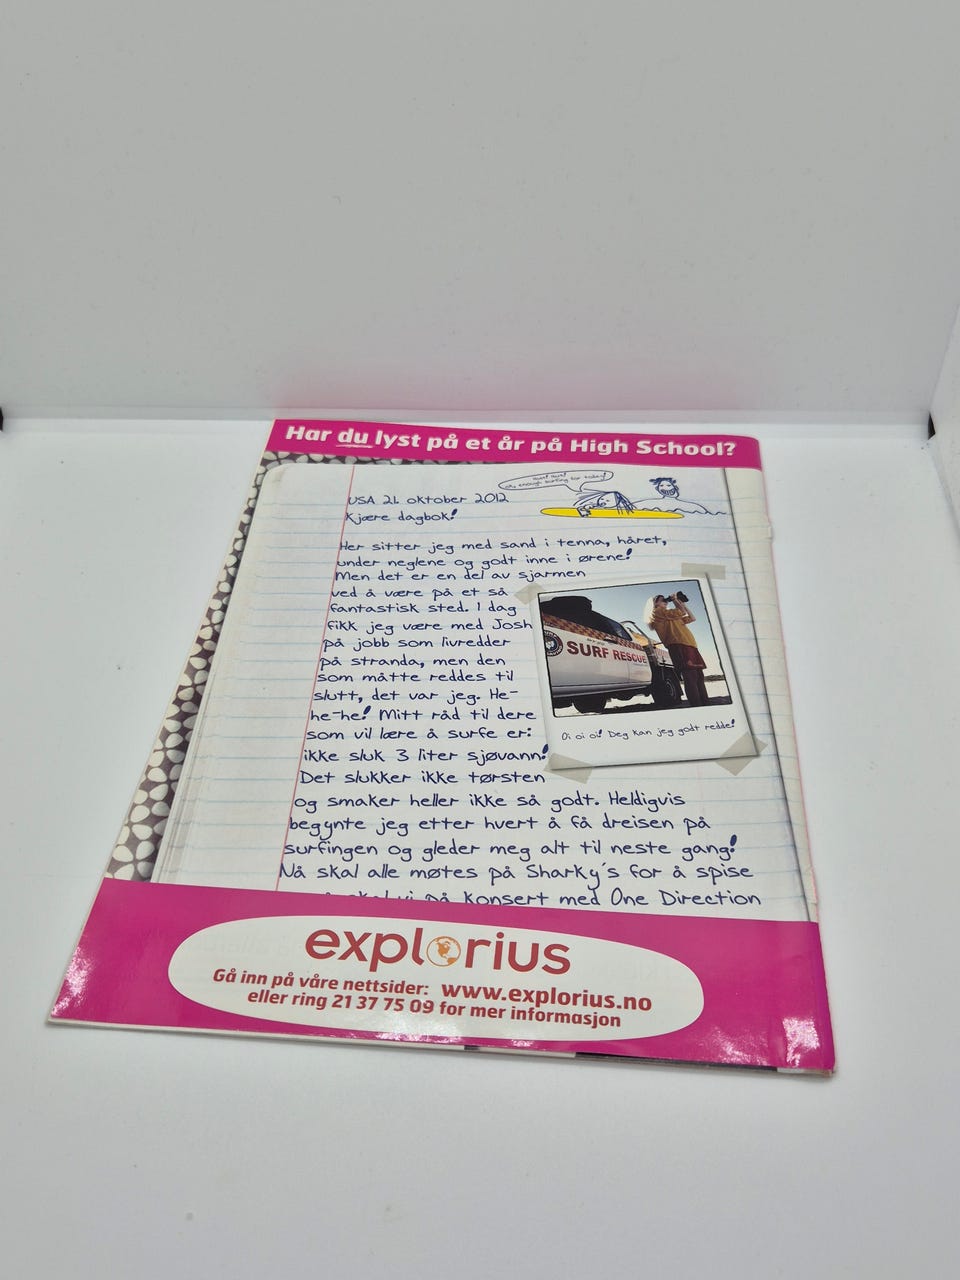 Har du lyst på et år på High School?
USA 21. oktober 2012
Kjære dagbok!
enough surfing for today!
Her sitter jeg med sand i tenna, håret,
under neglene og godt inne i ørene!
Men det er en del av sjarmen
ved å være på et så
fantastisk sted. I dag
fikk jeg være med Josh
på jobb som livredder
på stranda, men den
som måtte reddes til
slutt, det var jeg. He-
he-he! Mitt råd til dere
som vil lære å surfe er:
ikke sluk 3 liter sjøvann!
Det slukker ikke tørsten
og smaker heller ikke så godt. Heldigvis
begynte jeg etter hvert å få dreisen på
surfingen og gleder meg alt til neste gang!
Nå skal alle møtes på Sharky's for å spise
skal vi på konsert med One Direction
SURF RESCUE
Oi oi oi! Deg kan jeg godt redde!
explorius
Gå inn på våre nettsider: www.explorius.no
eller ring 21 37 75 09 for mer informasjon